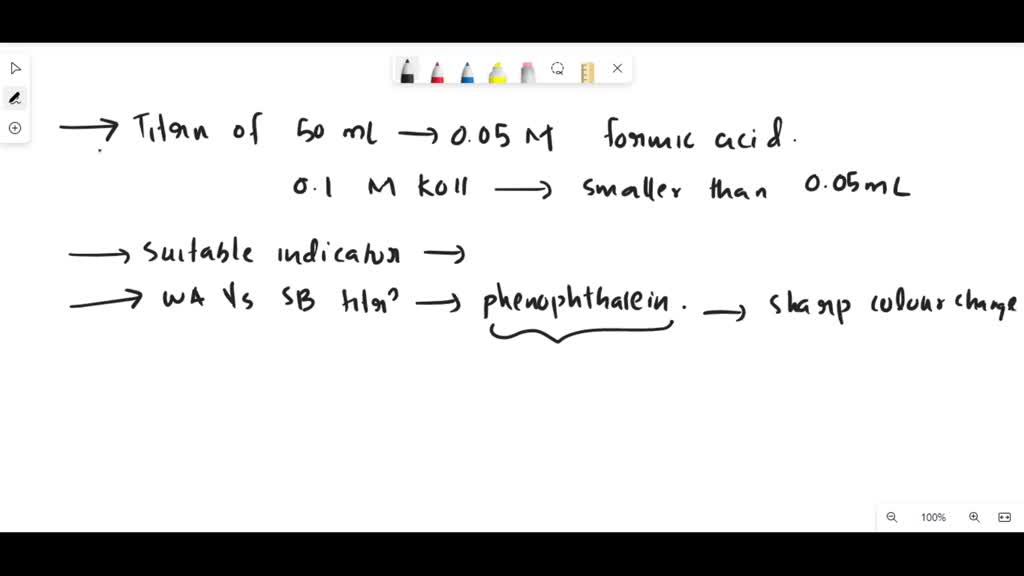 → Titran of 50 ml → 0.05 M formic acid.
0.1 M KOH → smaller than 0.05mL
→ suitable indicator →
→ WA Vs SB titrn → phenophthalein. → sharp colour change
100%